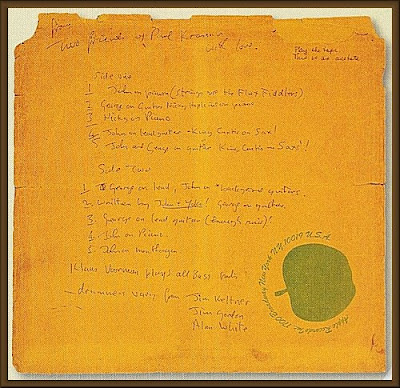 from
Two friends of Phil
with love.
Play the tape
This is an acetate
Side one
1 John on piano (strings are the Flux Fiddlers)
2 George on Guitar Nicky Hopkins on piano
3 Nicky on Piano
4 John on lead guitar - King Curtis on Sax!
5 John and George on guitar King Curtis - Sax!
Side Two
1 George on lead, John on guitar.
2 written by John + Yoko! George on guitar.
3. George on lead guitar (enough said)!
4 John on Piano.
5 John on mouthorgan
Klaus Voorman plays all Bass
drummers vary from Jim Keltner
Jim Gordon
Alan White
Apple Records Inc. 1700 Broadway New York N.Y. 10019 U.S.A.